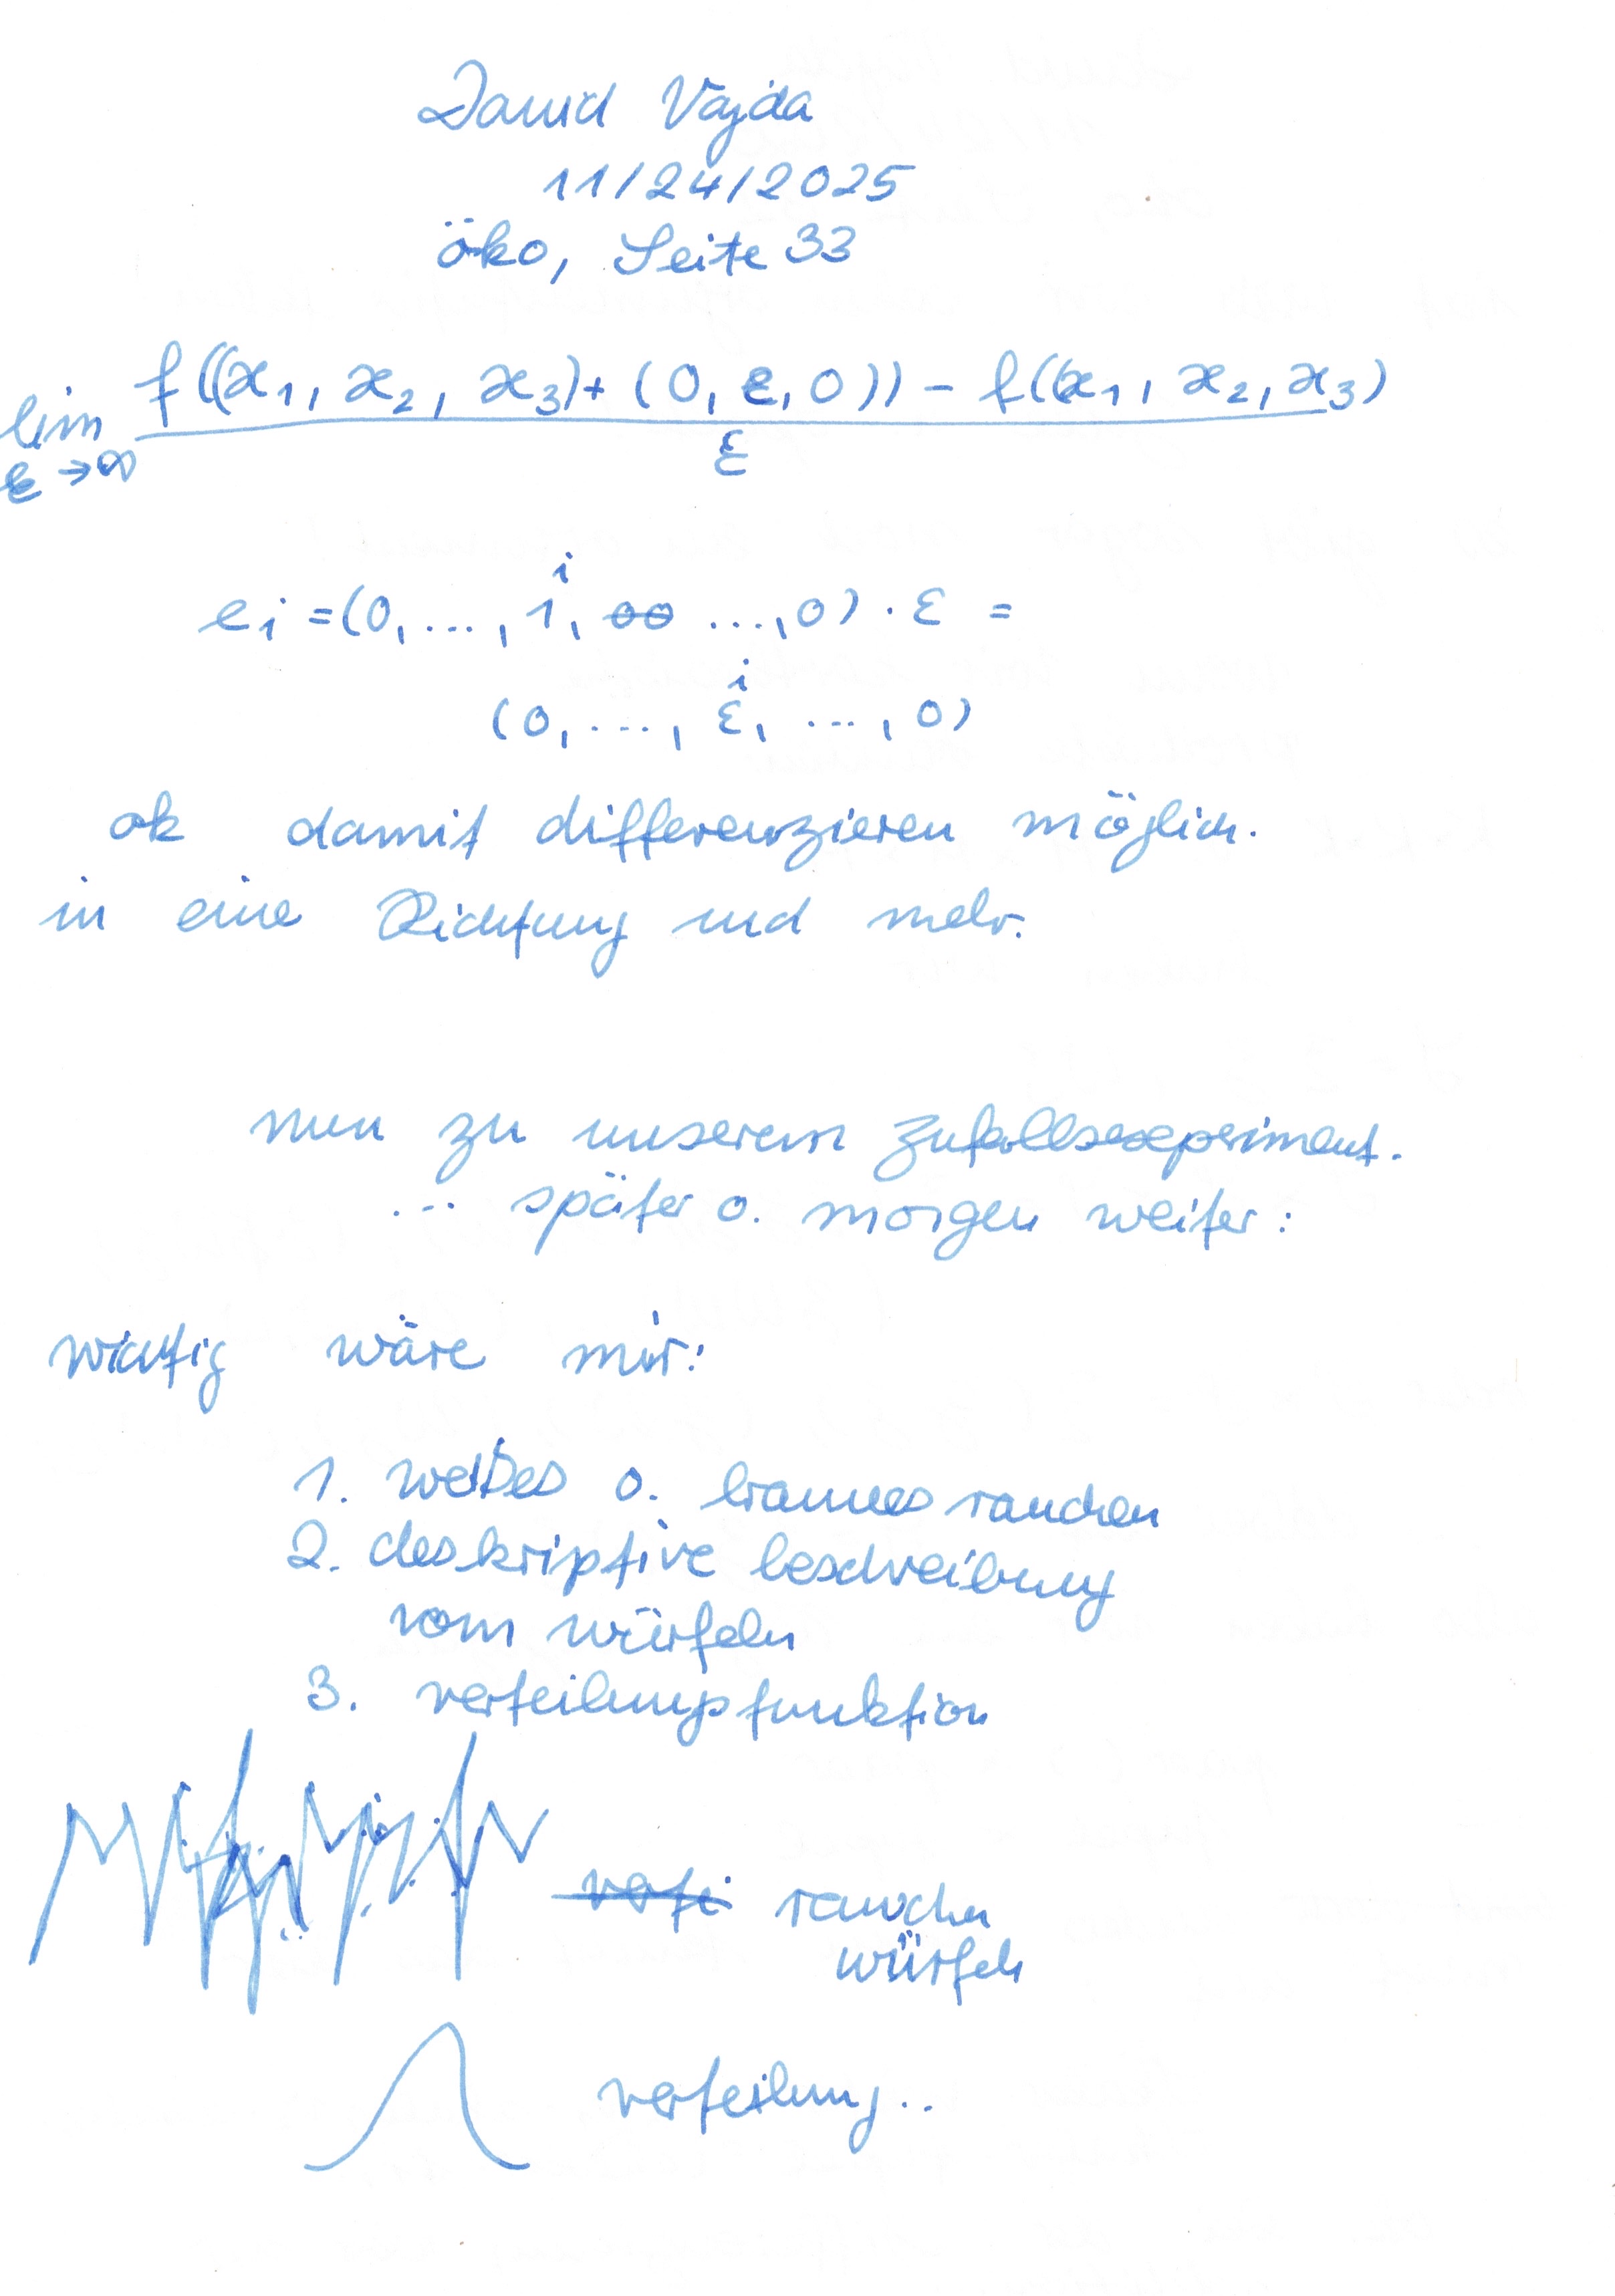 David Vajda
11/24/2025
öko, Seite 33
f((x1, x2, x3)+(0, ε, 0)) - f((x1, x2, x3)
lim
ε→∞
ε
i
ei =(0, ..., 1, ..., 0) · ε =
i
(0, ..., ε, ..., 0)
ok damit differenzieren möglich.
in eine Richtung und mehr.
nun zu unserem zufallsexperiment.
... später o. morgen weiter:
wichtig wäre mir:
1. weißes o. braunes rauschen
2. deskriptive beschreibung
vom würfeln
3. verteilungsfunktion
rauschen
würfeln
verteilung..